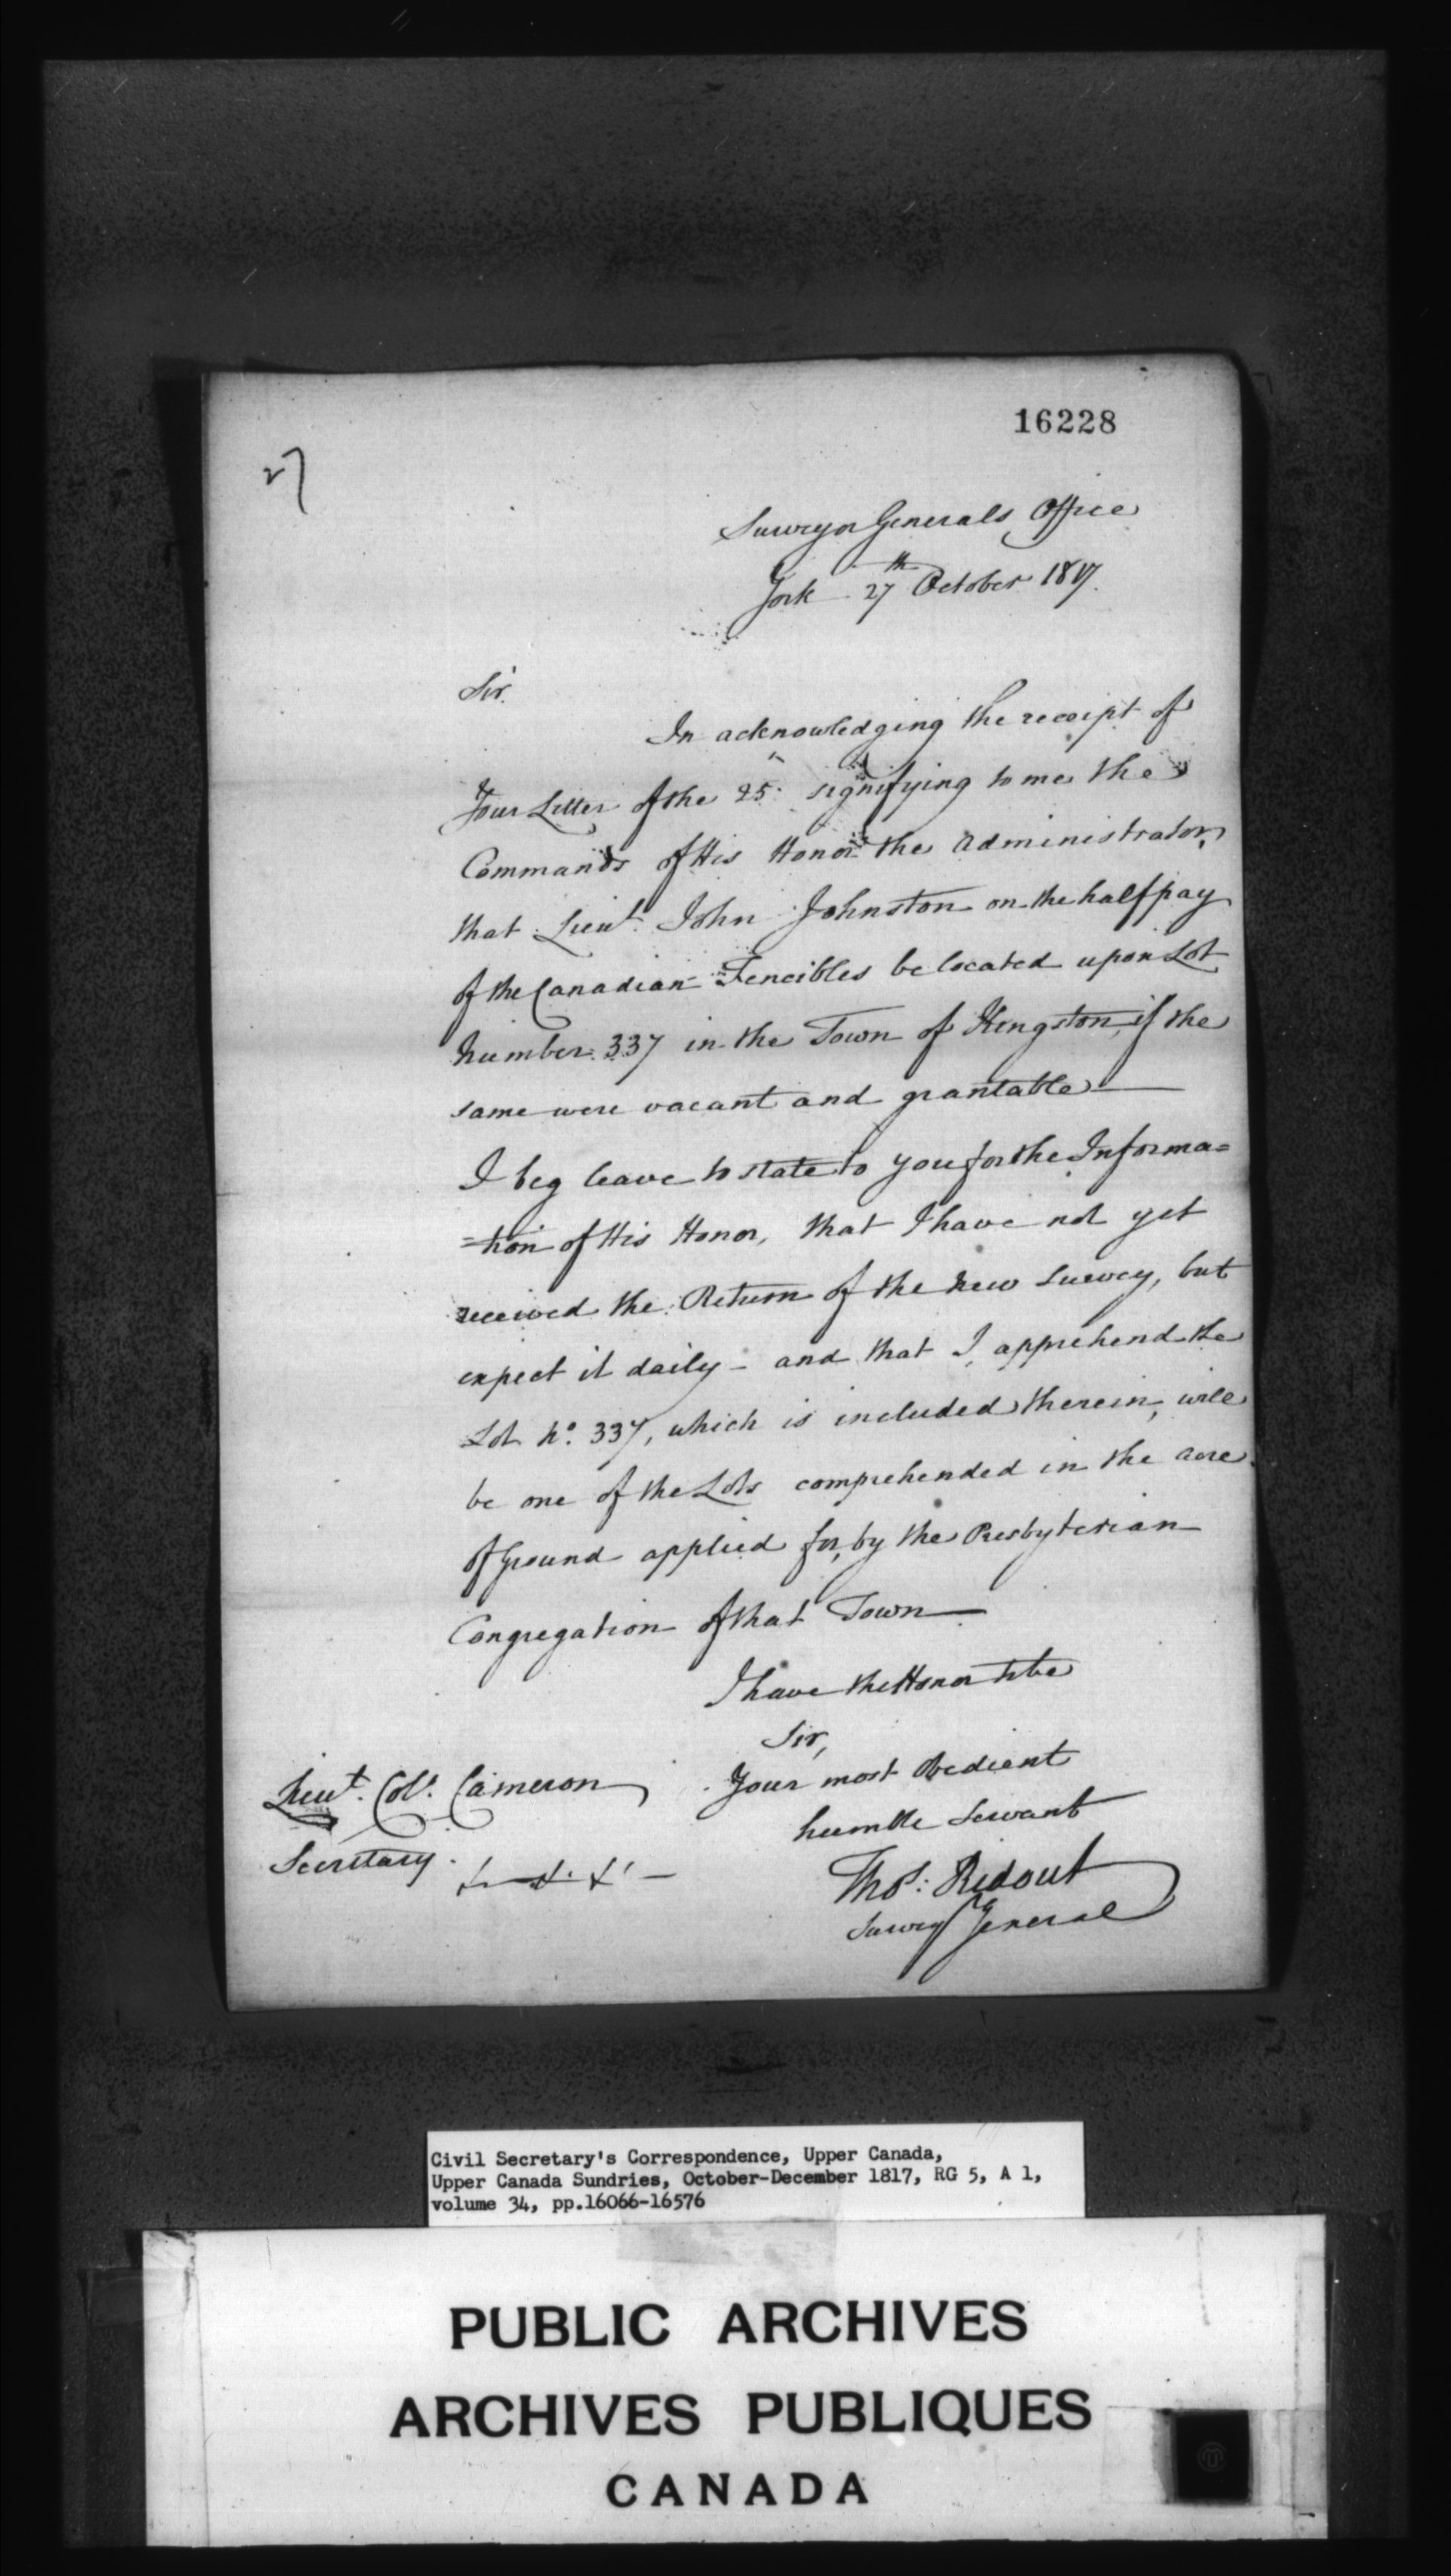 16228
27
Surveyor Generals Office
York 27th October 1817.
Sir.
In acknowledging the receipt of
Your Letter of the 25th signifying to me the
Commands of His Honor the Administrator,
that Lieut. John Johnston on the half pay
of the Canadian Fencibles be located upon Lot
Number 337 in the Town of Kingston, if the
same were vacant and grantable —
I beg leave to state to you for the Informa=
=tion of His Honor, that I have not yet
received the Return of the New Survey, but
expect it daily - and that I apprehend the
Lot No. 337, which is included therein, will
be one of the Lots comprehended in the acre
of Ground applied for, by the Presbyterian
Congregation of that Town —
I have the Honor to be
Sir,
Your most Obedient
humble Servant
Lieut. Col. Cameron
Secretary.
Thos: Ridout
Survey General
Civil Secretary's Correspondence, Upper Canada,
Upper Canada Sundries, October-December 1817, RG 5, A 1,
volume 34, pp.16066-16576
PUBLIC ARCHIVES
ARCHIVES PUBLIQUES
CANADA